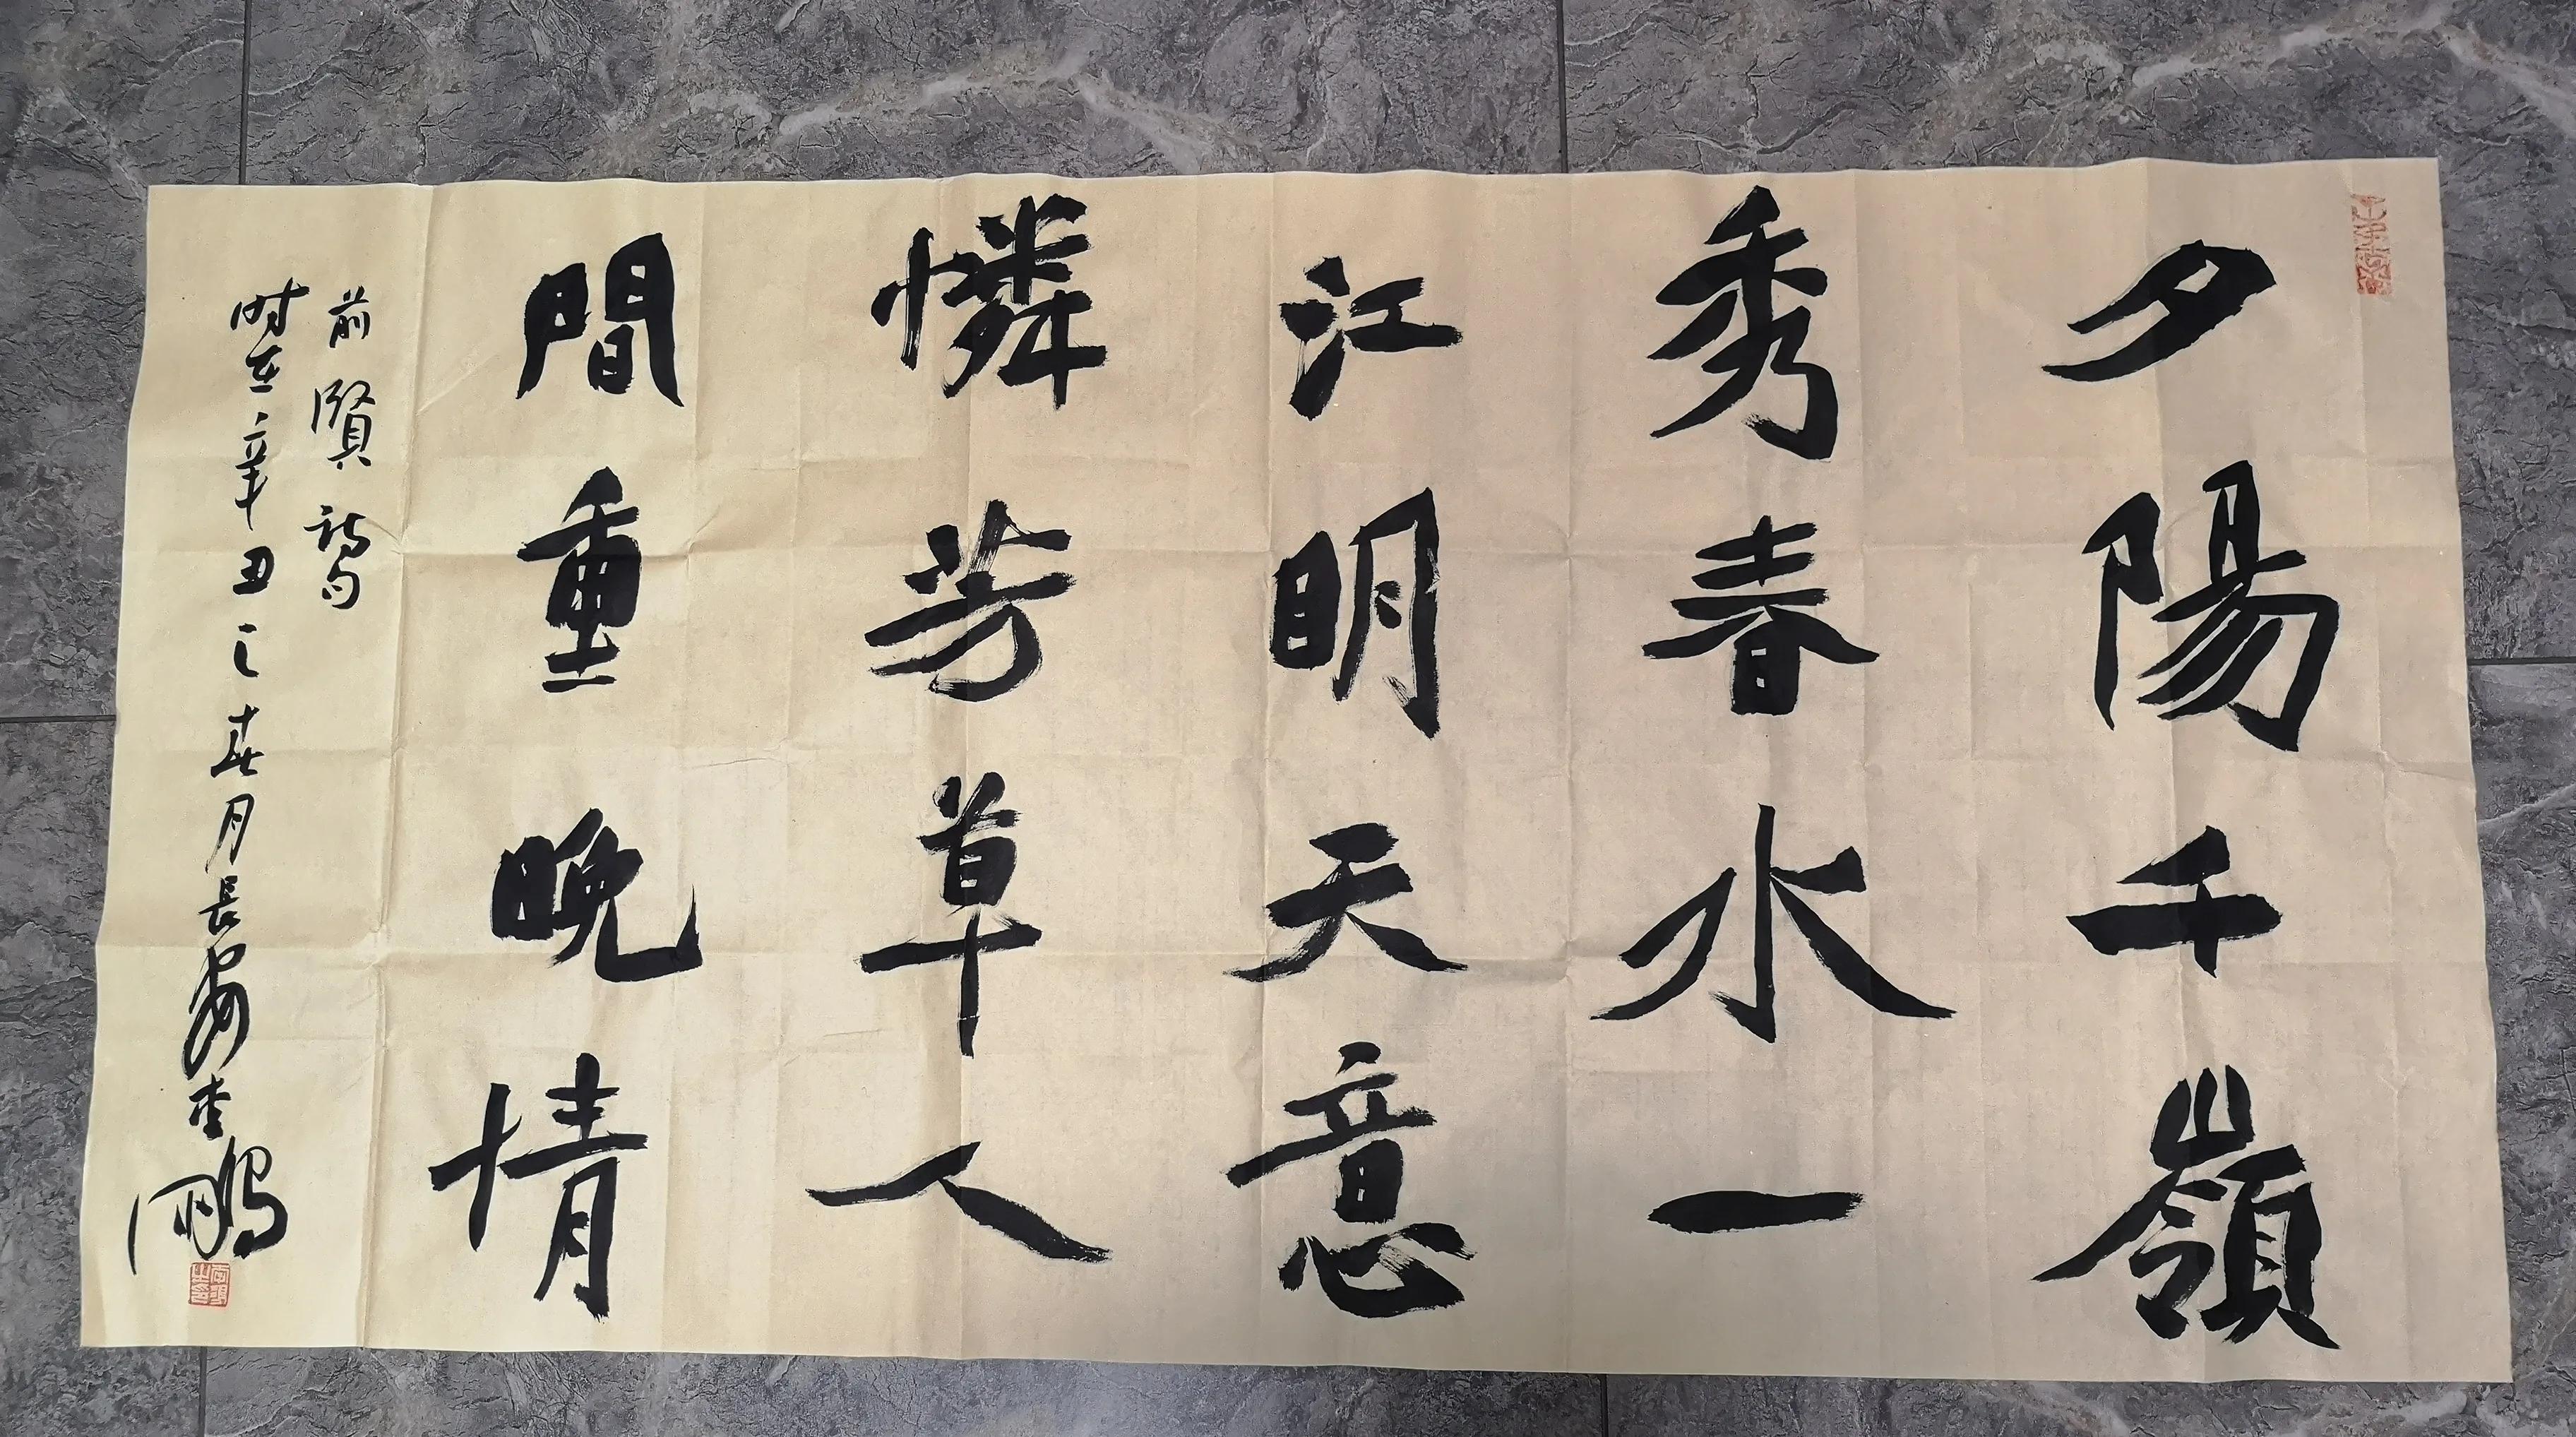 夕陽千嶺
秀春水一
江明天意
憐芳草人
間重晚情
前賢詩句
时在辛丑之春月長安李鵬